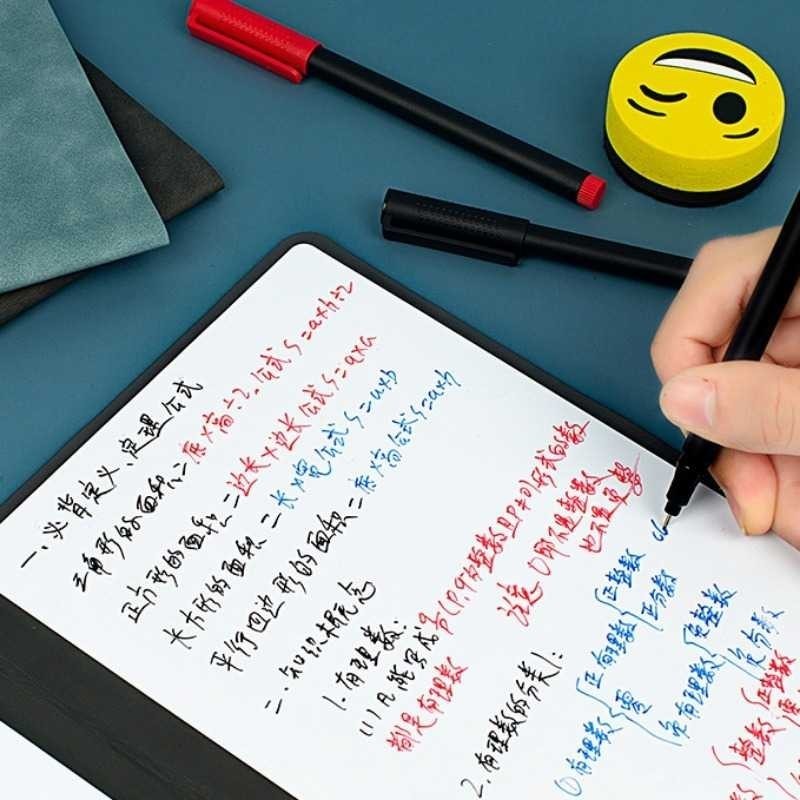 一、必背定义、定理公式
三角形的面积=底×高÷2。公式S=a×h÷2
正方形的面积=边长×边长公式S=a×a
长方形的面积=长×宽公式S=a×b
平行四边形的面积=底×高公式S=a×h
二、知识概念
1.有理数:
(1)凡能写成 (P,q为整数且P≠0)形式的数
都是有理数
注意 0即不是整数
也不是
2.有理数的分类1:
①有理数
正有理数
正整数
正分数
零
负有理数
负整数
负分数
整数
正整数